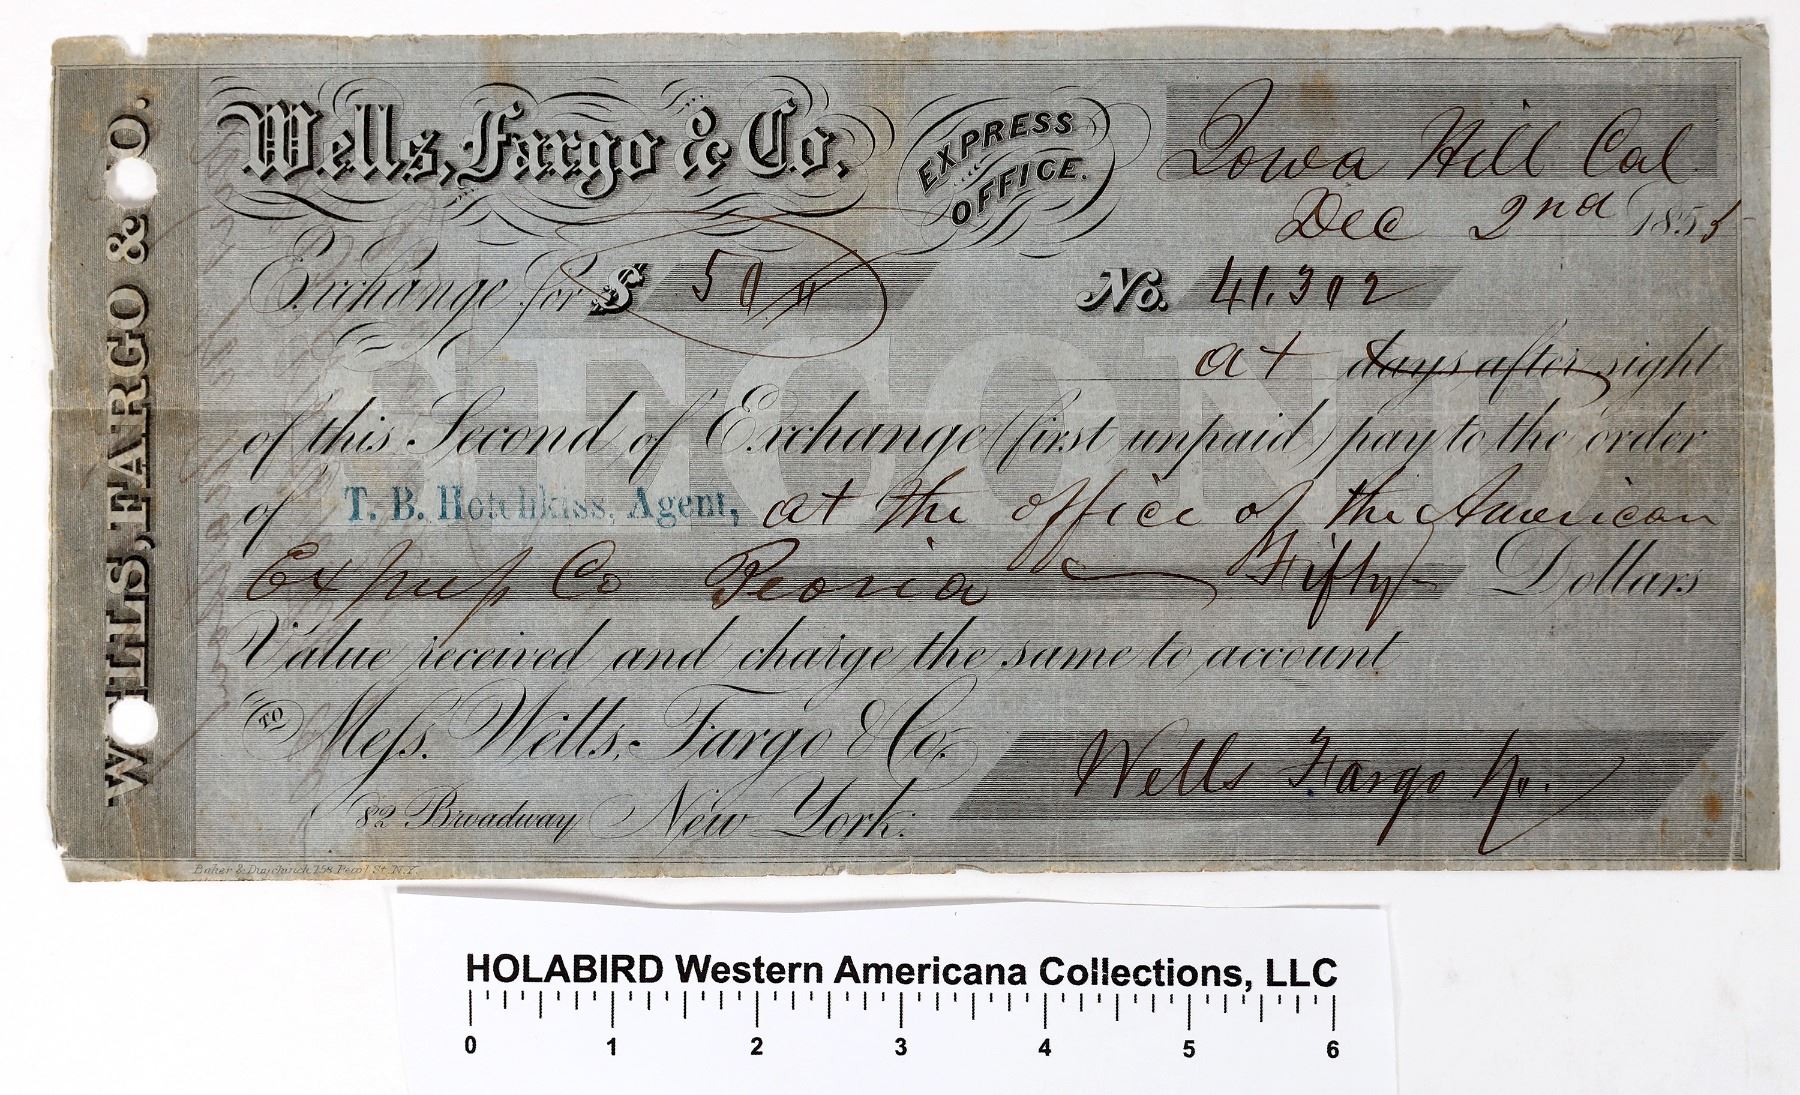 WELLS, FARGO & CO.
Wells, Fargo & Co.
EXPRESS
OFFICE.
Iowa Hill Cal
Dec 2nd 1855
Exchange for $ 50
No. 41.302
at days after sight
SECOND
of this Second of Exchange (first unpaid) pay to the order
of T. B. Hotchkiss, Agent, at the office of the American
Express Co Peoria Fifty Dollars
Value received and charge the same to account
TO Mess. Wells, Fargo & Co.
82 Broadway New York.
Wells Fargo
Baker & 158 Pearl St. N.Y.
HOLABIRD Western Americana Collections, LLC
0 1 2 3 4 5 6